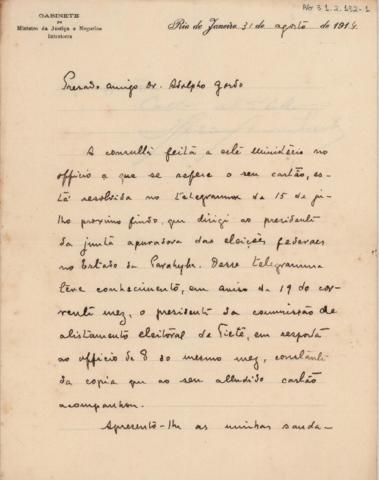 AG 3 1.2.132-1
GABINETE
do
Ministro da Justiça e Negocios
Interiores
Rio de Janeiro 31 de agosto de 1914
Presado amigo Dr. Adolpho Gordo
A consulta feita a este Ministério no
officio a que se refere o seu cartão, es-
tá resolvida no telegramma de 15 de ju-
lho proximo findo, que dirigi ao presidente
da junta apuradora das eleições federaes
no Estado da Parahyba. Desse telegramma
teve conhecimento, em aviso de 19 do cor-
rente mez, o presidente da commissão de
alistamento eleitoral de Tieté, em resposta
ao officio de 8 do mesmo mez, constante
da copia que ao seu alludido cartão
acompanhou.
Apresento-lhe as minhas sauda-